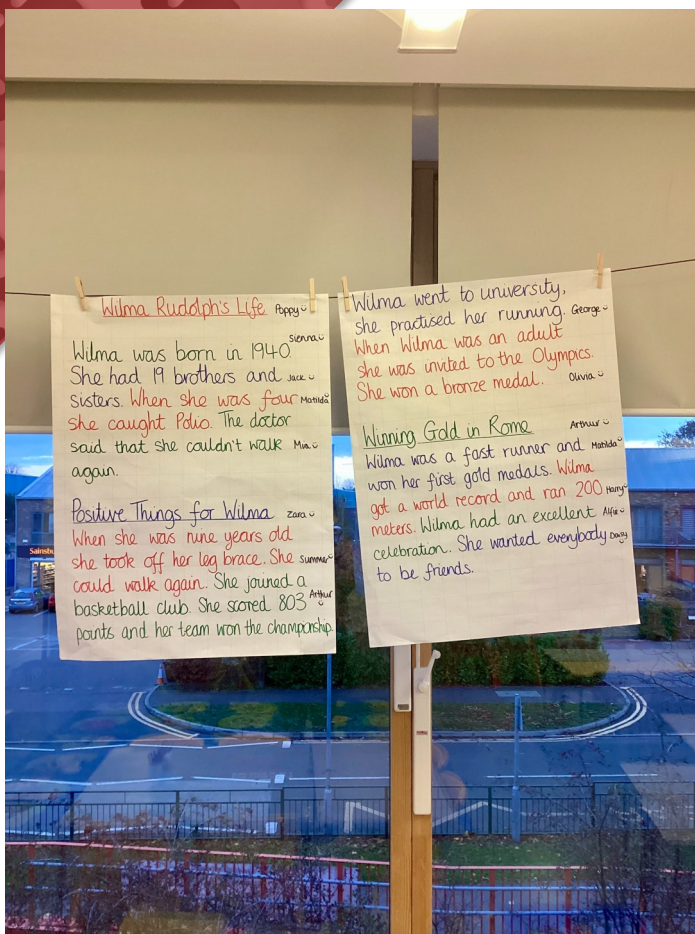 Wilma Rudolph's Life Poppy
Sienna
Wilma was born in 1940.
She had 19 brothers and Jack
sisters. When she was four Matilda
she caught Polio. The doctor
said that she couldn't walk Mia
again.
Positive Things for Wilma Zara
When she was nine years old
she took off her leg brace. She Summer
could walk again. She joined a
basketball club. She scored 803 Arthur
points and her team won the championship.
Wilma went to university,
she practised her running. George
When Wilma was an adult
she was invited to the Olympics.
She won a bronze medal. Olivia
Winning Gold in Rome Arthur
Wilma was a fast runner and Matilda
won her first gold medals. Wilma
got a world record and ran 200 Harry
meters. Wilma had an excellent Alfie
celebration. She wanted everybody Daisy
to be friends.
Sainsbu